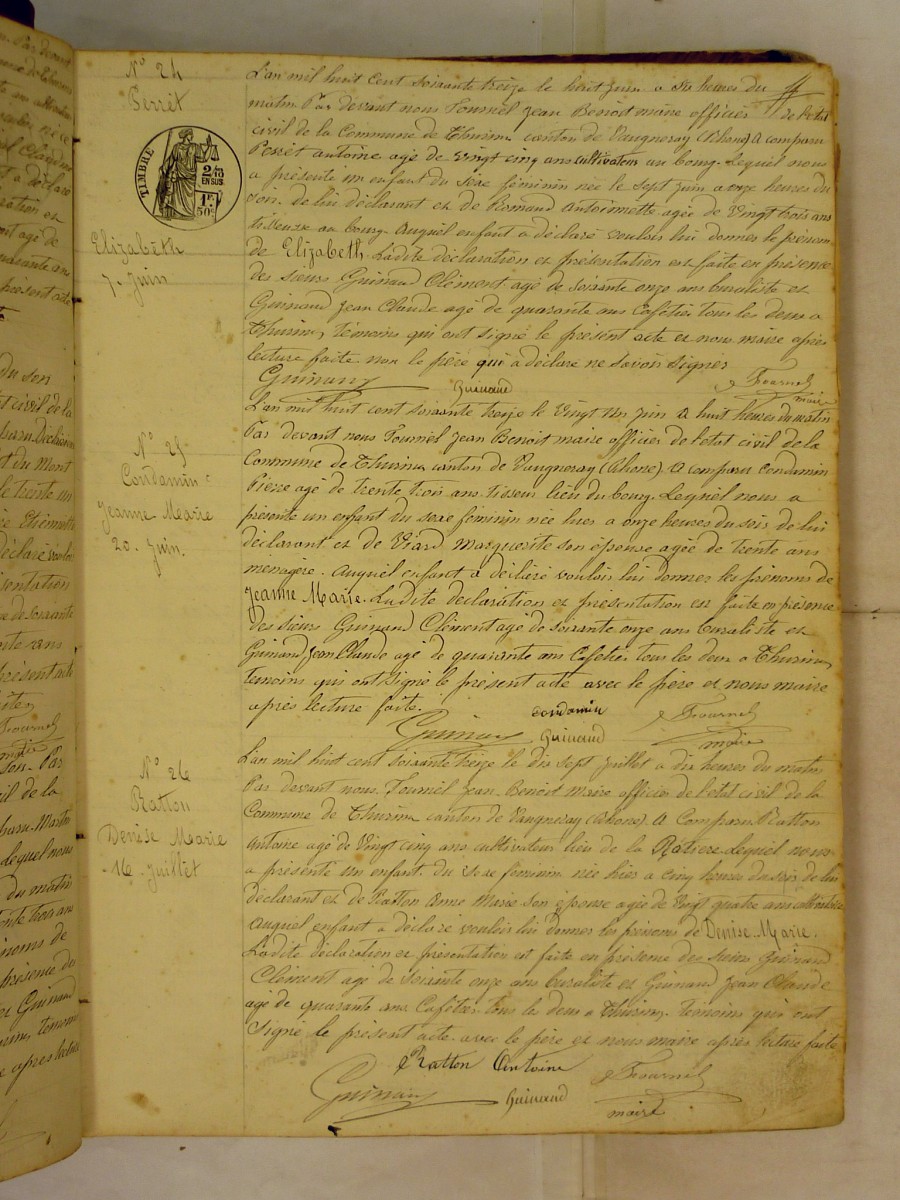 N° 24
Perret
TIMBRE
2/10
EN SUS
1F
50c
Elizabeth
7. Juin
L'an mil huit cent soixante treize le huit Juin a six heures du
matin Par devant nous Fournel Jean Benoit maire officier de l'etat
civil de la Commune de Thurins canton de Vaugneray (Rhone) A comparu
Perret antoine agé de vingt cinq ans cultivateur au bourg. Lequel nous
a présenté un enfant du sexe féminin née le sept Juin a onze heures du
soir. de lui déclarant et de Romand Antoinette agée de Vingt trois ans
tisseuse au bourg. Auquel enfant a déclaré vouloir lui donner le prénom
de Elizabeth. Ladite déclaration et présentation est faite en présence
des sieurs Guinand Clément agé de soixante onze ans buraliste et
Guinand Jean Claude agé de quarante ans Cafetier tous les deux a
Thurins, témoins qui ont signé le présent acte et nous maire après
lecture faite non le père qui a déclaré ne savoir signer
Guinand Guinand Fournel
maire
N° 25
Condamin
Jeanne Marie
20. Juin.
L'an mil huit cent soixante treize le vingt un Juin a huit heures du matin
Par devant nous Fournel Jean Benoit maire officier de l'etat civil de la
Commune de Thurins canton de Vaugneray (Rhone). A comparu Condamin
Pierre agé de trente trois ans. tisseur lieu du bourg. Lequel nous a
présenté un enfant du sexe féminin née hier a onze heures du soir de lui
déclarant et de Viard Marguerite son épouse agée de trente ans
ménagère. Auquel enfant a déclaré vouloir lui donner les prénoms de
Jeanne Marie. Ladite déclaration et présentation est faite en présence
des sieurs Guinand Clément agé de soixante onze ans buraliste et
Guinand Jean Claude agé de quarante ans Cafetier tous les deux a Thurins
temoins qui ont signé le présent acte avec le père et nous maire
après lecture faite.
condamin
Guinand Guinand Fournel
maire
N° 26
Ratton
Denise Marie
16 Juillet
L'an mil huit cent soixante treize le dix sept Juillet a dix heures du matin
Par devant nous Fournel Jean-Benoit Maire officier de l'etat civil de la
Commune de Thurins canton de Vaugneray (Rhone). A Comparu Ratton
Antoine agé de Vingt cinq ans cultivateur lieu de la Ratiere Lequel nous
a présenté un enfant. du sexe féminin née hier a cinq heures du soir de lui
déclarant et de Ratton Anne Marie son épouse agée de vingt quatre ans cultivatrice
Auquel enfant a déclaré vouloir lui donner les prénoms de Denise Marie.
Ladite déclaration et présentation est faite en présence des sieurs Guinand
Clément agé de soixante onze ans buraliste et Guinand Jean Claude
agé de quarante ans Cafetier tous les deux a Thurins. temoins qui ont
signé le présent acte avec le père et nous maire après lecture faite
Ratton Antoine
Guinand Guinand Fournel
maire